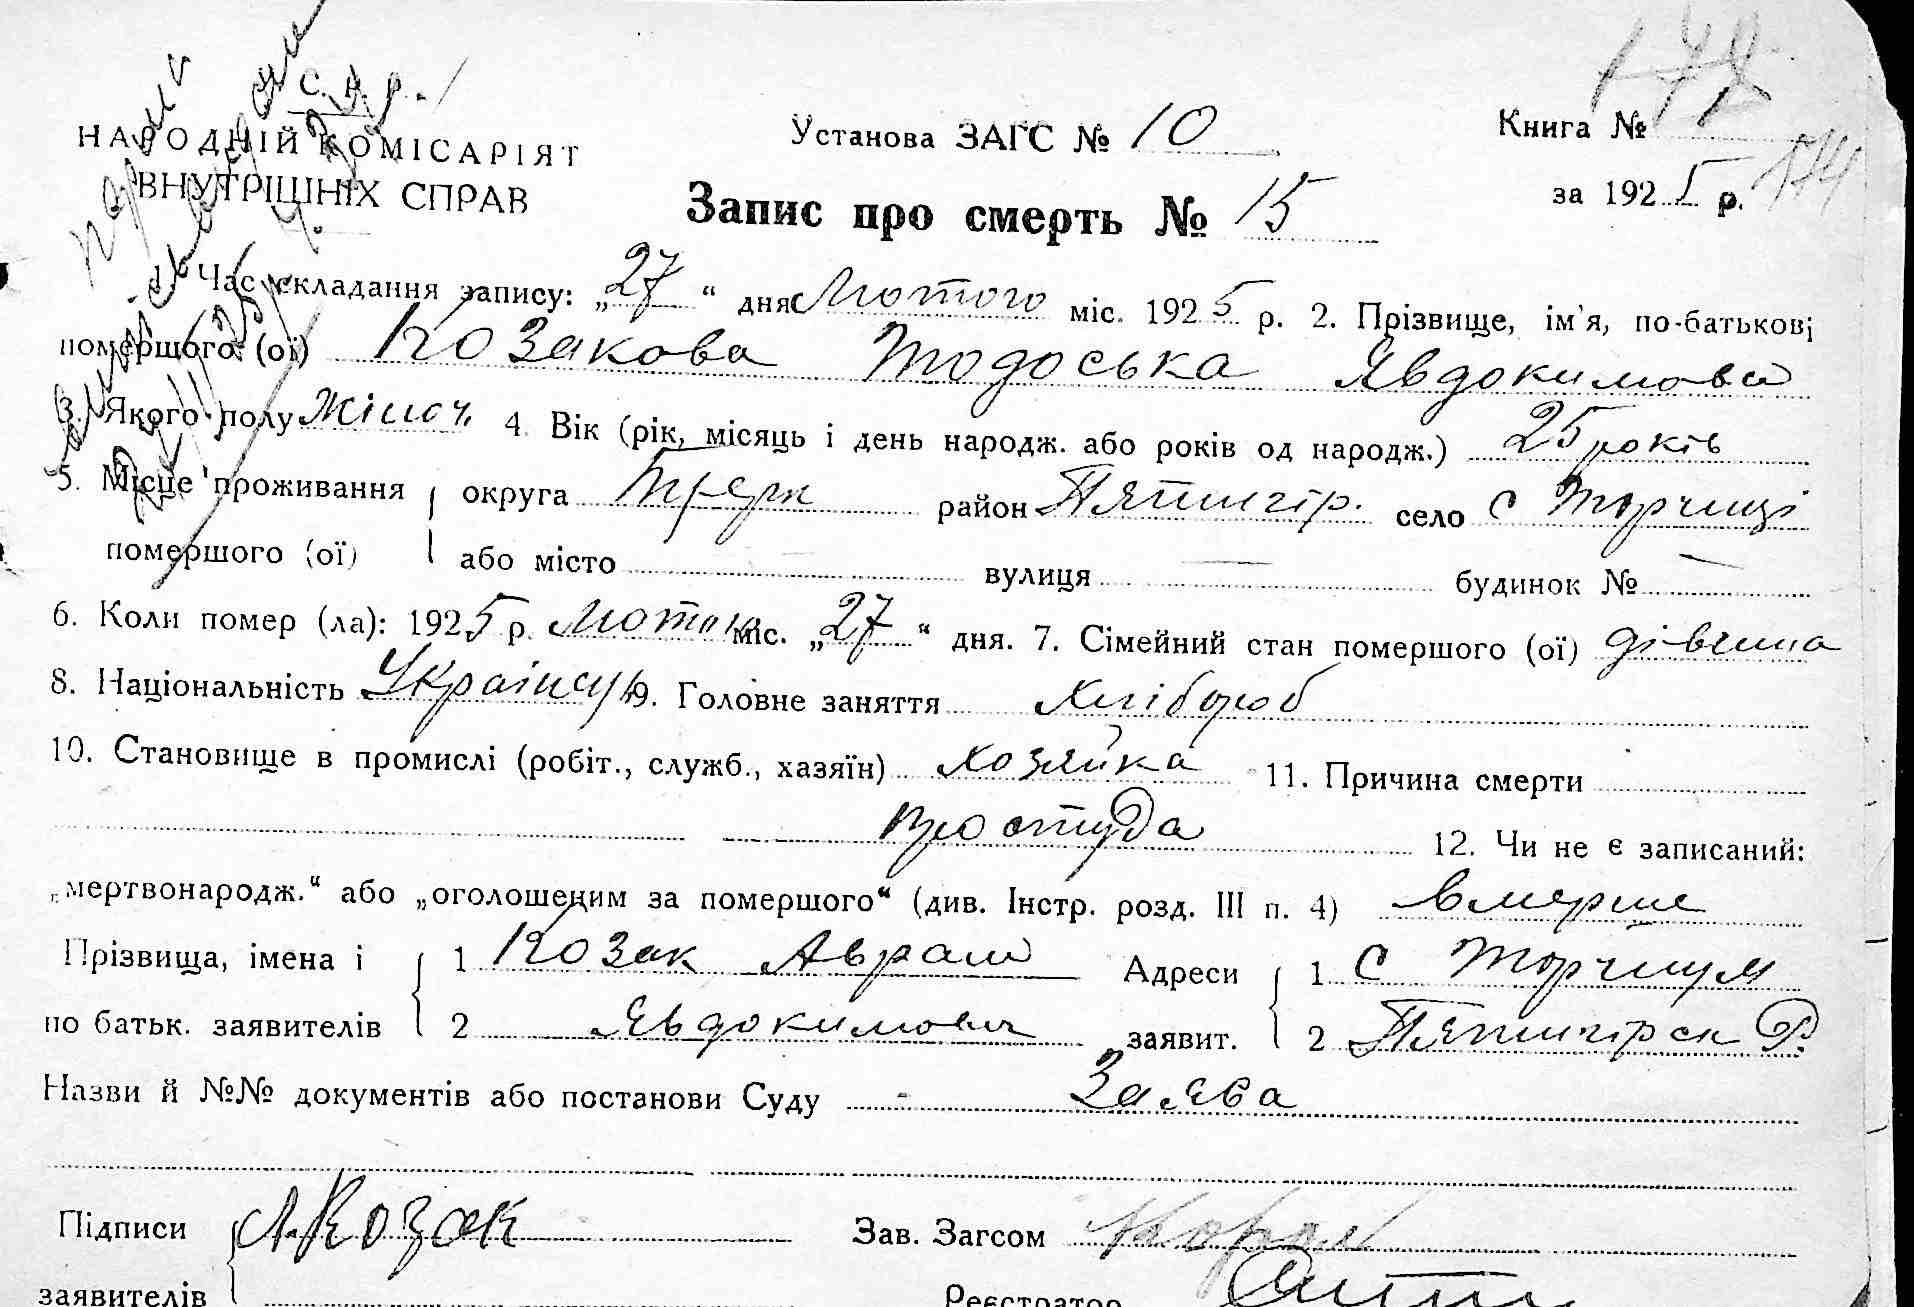 НАРОДНІЙ КОМІСАРІЯТ
ВНУТРІШНІХ СПРАВ
Установа ЗАГС № 10
Книга №
174
за 1925 р.
Запис про смерть № 15
1. Час складання запису: „27“ дня Лютого міс. 1925 р. 2. Прізвище, ім'я, по-батькові
помершого (ої) Козакова Тодоська Явдокимова
3. Якого полу жіноч. 4. Вік (рік, місяць і день народж. або років од народж.) 25 років
5. Місце проживання округа район Пятигір. село с Торчиці
помершого (ої) або місто вулиця будинок № —
6. Коли помер (ла): 1925 р. Лютого міс. „27“ дня. 7. Сімейний стан помершого (ої) дівчина
8. Національність 9. Головне заняття Хлібороб
10. Становище в промислі (робіт., служб., хазяїн) хозяйка 11. Причина смерти
простуда 12. Чи не є записаний:
„мертвонародж.“ або „оголошеним за помершого“ (див. Інстр. розд. III п. 4) вмерше
Прізвища, імена і 1 Козак Аврам Адреси 1 С
по батьк. заявителів 2 Явдокимович заявит. 2 Р.
Назви й №№ документів або постанови Суду Заява
Підписи А. Козак Зав. Загсом
заявителів Реєстратор